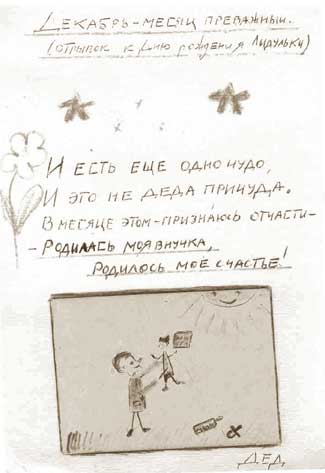 Декабрь-месяц преважный.
(отрывок к Дню рождения Лидульки)
И есть еще одно чудо,
И это не деда причуда.
В месяце этом-признаюсь отчасти-
-Родилась моя внучка,
Родилось моё счастье!
ДЕД